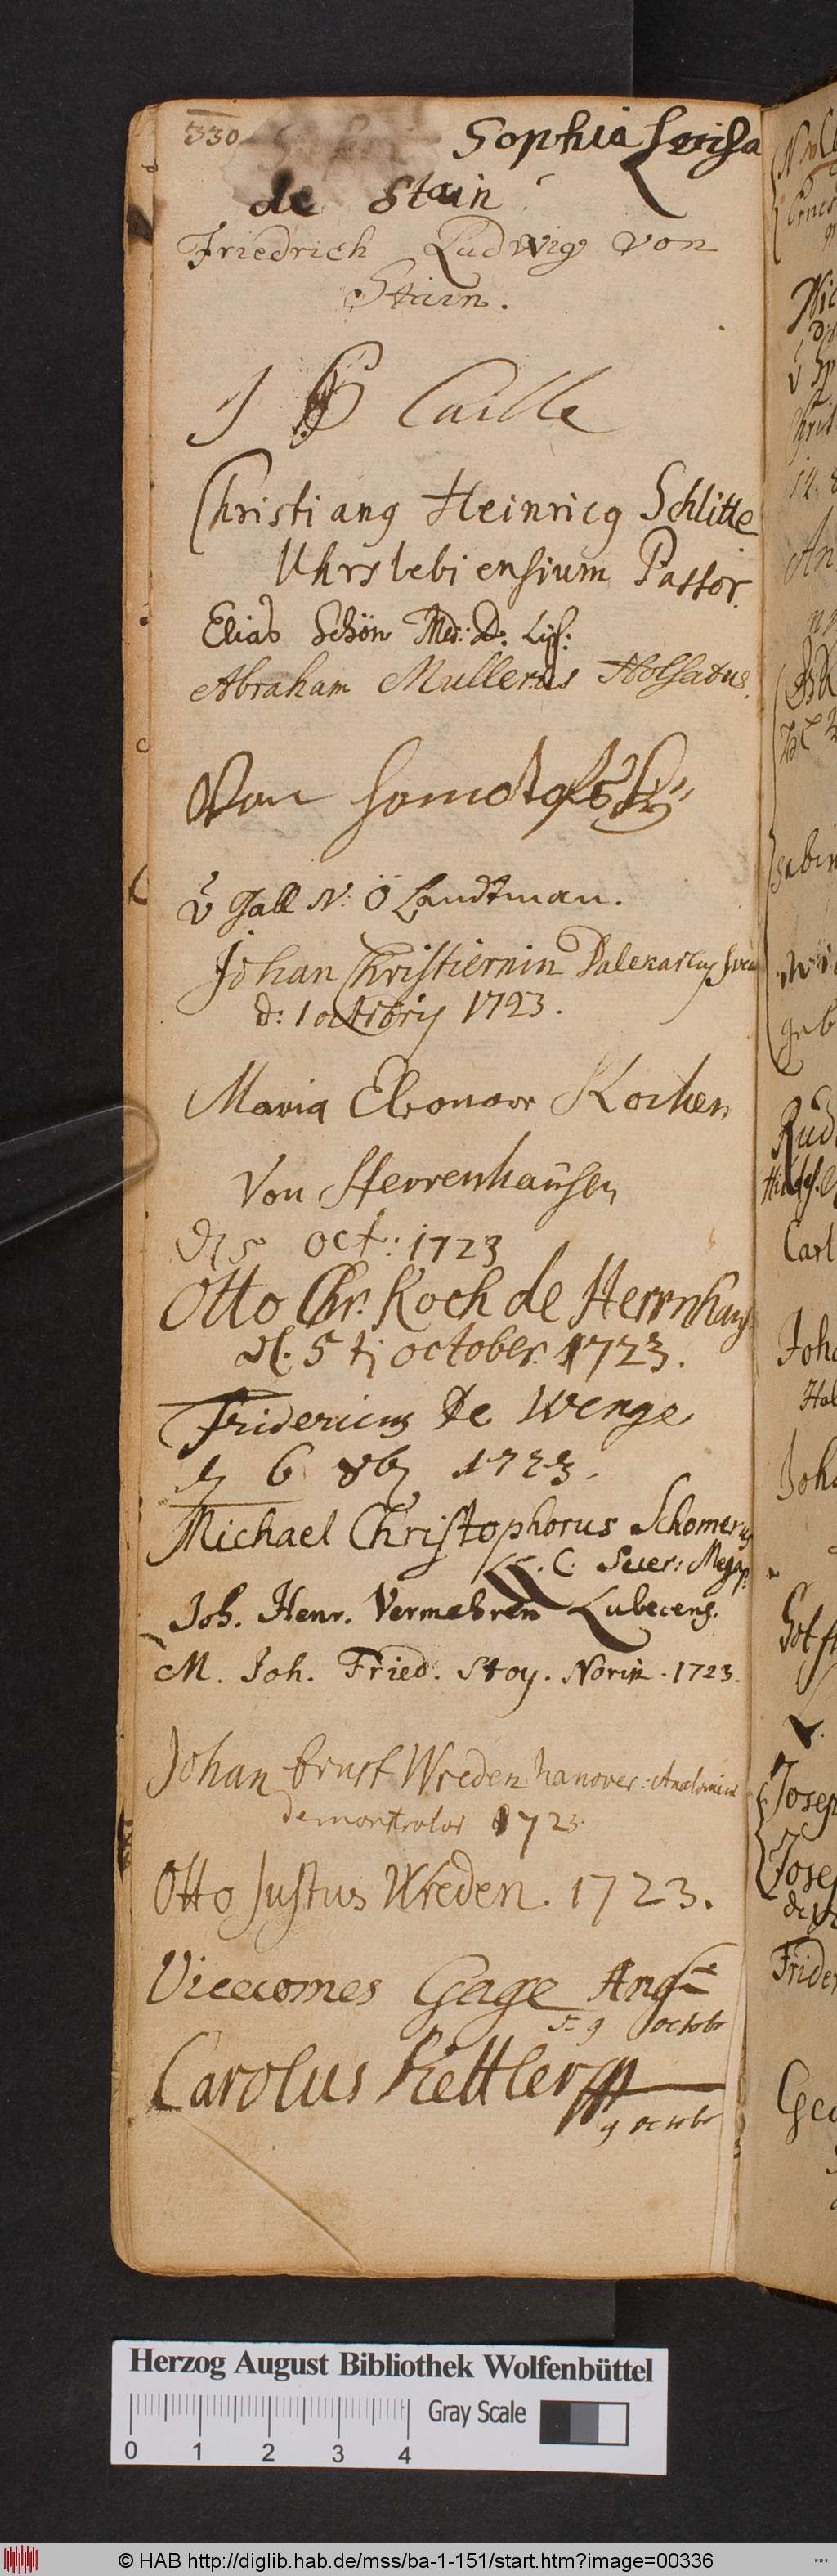 330
Sophia Louisa
de Stain
Friedrich Ludwig von
Stain.
Caille
Christiang Heinricg Schlitte
Uhrslebiensium Pastor.
Elias Schön Med: D: Lips:
Abraham Mullerus Holsatus.
Von
v Gall N: Ö Landtman.
Johan Christiernin Dalekarlus
d: 1 octobris 1723.
Maria Eleonoor Kochen
Von Herrenhausen
5 Oct: 1723
Otto Chr. Koch de Herrnhaus
d. 5 tj october. 1723.
Fridericus De Wenge
6 8br 1723.
Michael Christophorus Schomerus
Joh. Henr. Vermehren Lubecens.
M. Joh. Fried. Stoy. Norin. 1723.
Johan Ernst Wreden hanover: Anatomiae
demonstrator 1723.
Otto Justus Wreden. 1723.
Vicecomes Gage Ang
9 octobr
Carolus Kettler
9 octobr
Herzog August Bibliothek Wolfenbüttel
Gray Scale
0 1 2 3 4
© HAB http://diglib.hab.de/mss/ba-1-151/start.htm?image=00336